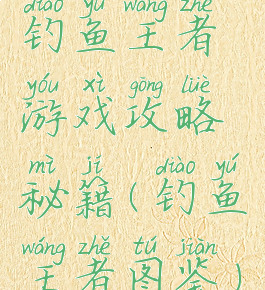 diào yú wáng zhě
钓鱼王者
yóu xì gōng lüè
游戏攻略
mì jí diào yú
秘籍(钓鱼
wáng zhě tú jiàn
王者图鉴)